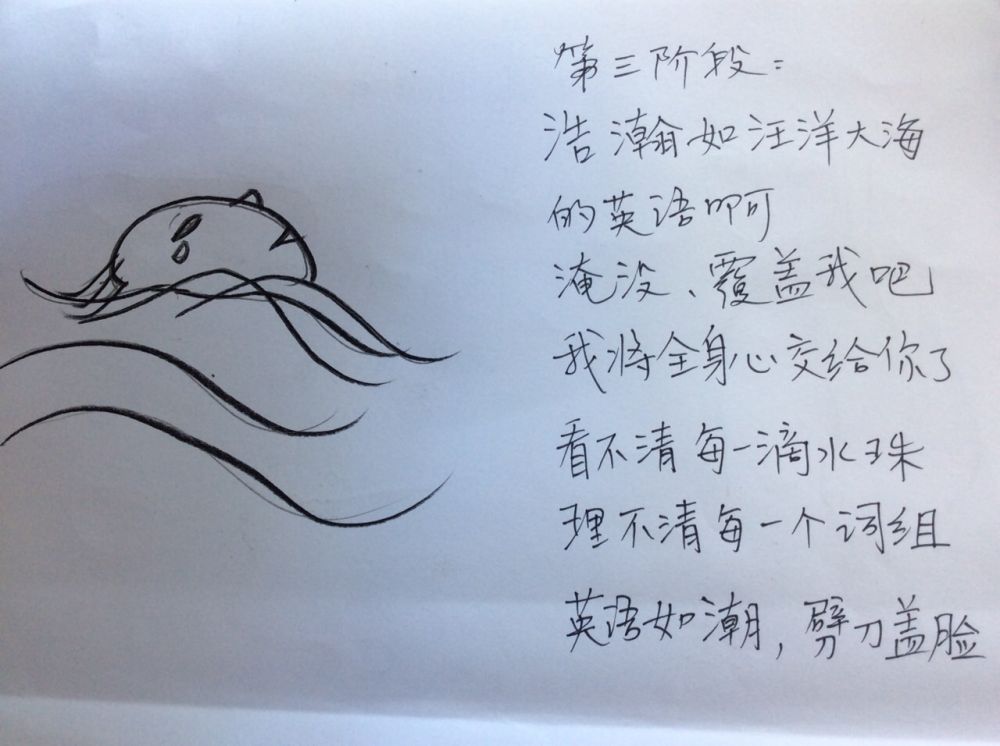 第三阶段：
浩瀚如汪洋大海
的英语啊
淹没、覆盖我吧
我将全身心交给你了
看不清每一滴水珠
理不清每一个词组
英语如潮，劈刀盖脸